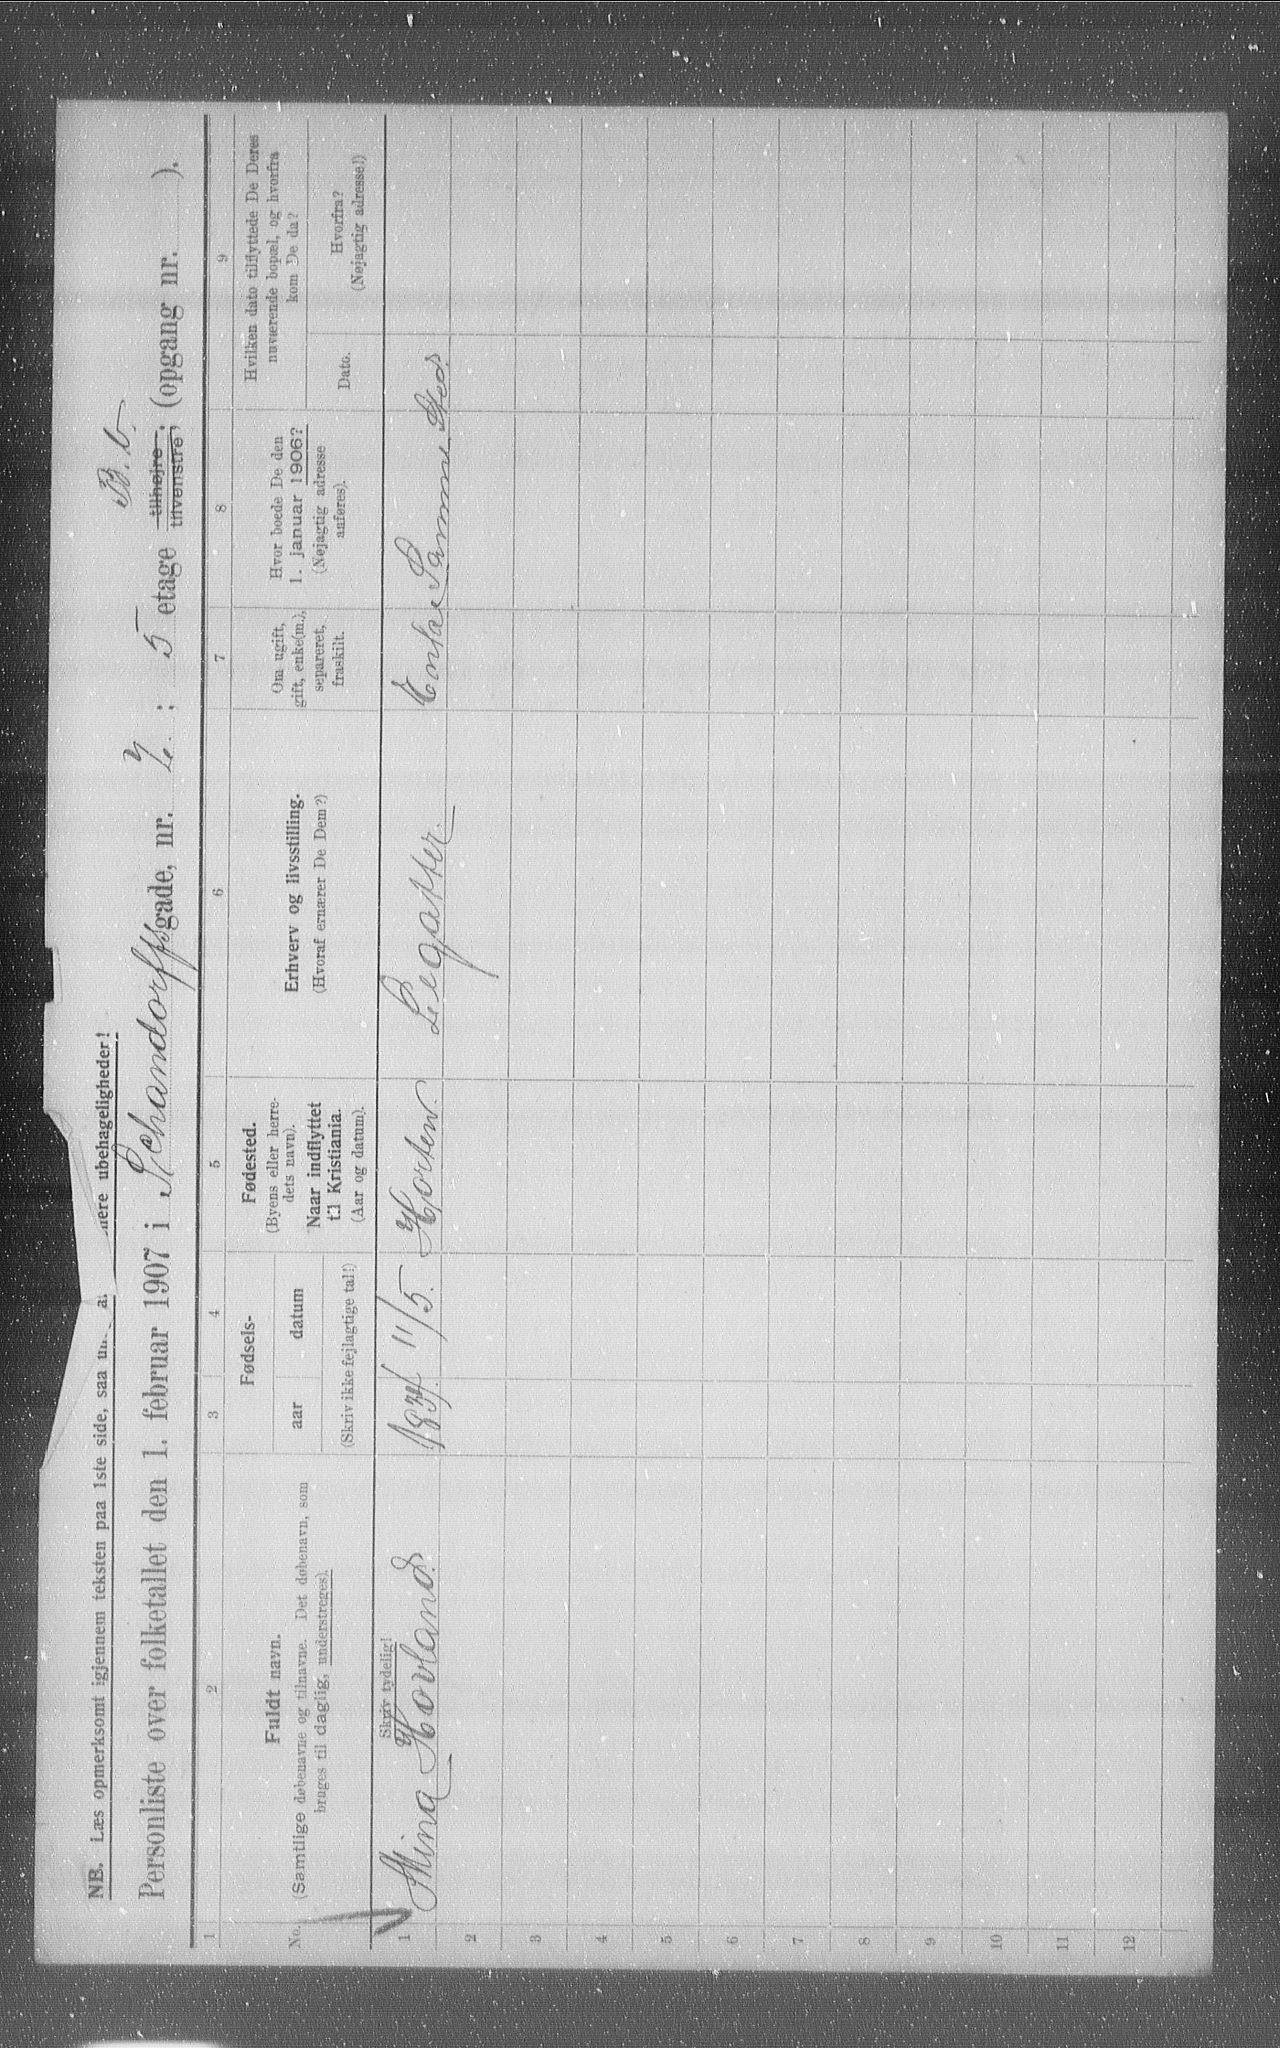 NB. Læs opmerksomt igjennem teksten paa 1ste side, saa un a nere ubehageligheder!
B. b.
Personliste over folketallet den 1. februar 1907 i Schandorffsgade, nr. 7; 5 etage tilhøjre, tilvenstre, (opgang nr. ).
1 2 3 4 5 6 7 8 9
No.
Fuldt navn.
(Samtlige døbenavne og tilnavne. Det døbenavn, som
bruges til daglig, understreges).
Fødsels-
aar datum
(Skriv ikke fejlagtige tal!)
Fødested.
(Byens eller herre-
dets navn).
Naar indflyttet
til Kristiania.
(Aar og datum).
Erhverv og livsstilling.
(Hvoraf ernærer De Dem?)
Om ugift,
gift, enke(m.),
separeret,
fraskilt.
Hvor boede De den
1. januar 1906?
(Nøjagtig adresse
anføres).
Hvilken dato tilflyttede De Deres
nuværende bopæl, og hvorfra
kom De da?
Dato.
Hvorfra?
(Nøjagtig adresse!)
Skriv tydelig!
1 Mina Hovland. 1834. 11/5. Horten. Legatter. Enke Samme Sted.
2
3
4
5
6
7
8
9
10
11
12